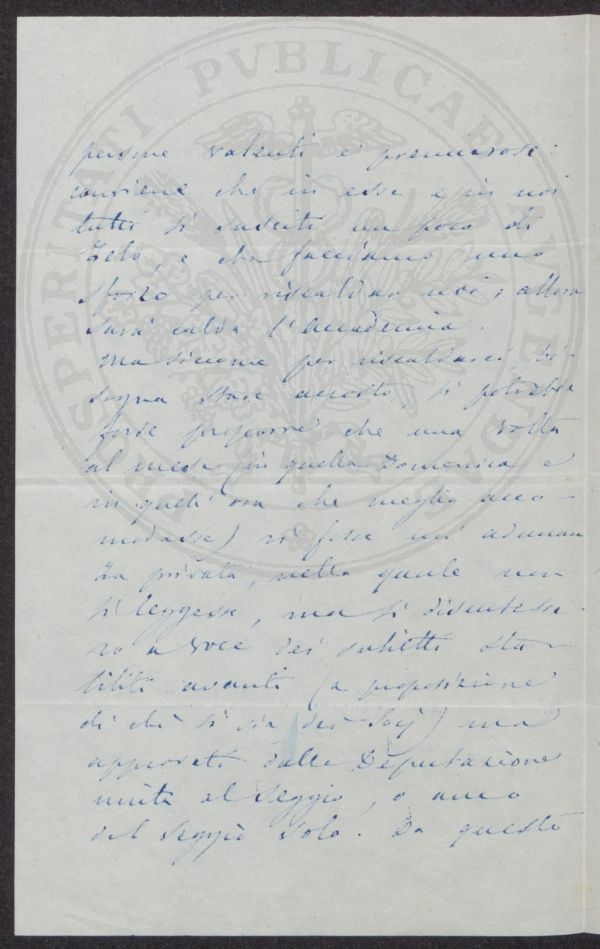 PROSPERITATI PVBLICAE AVGENDAE
persone valenti e premurose:
conviene che in esse e in noi
tutti si susciti un poco di
zelo, e che facciamo uno
sforzo per riscaldar noi; allora
sarà calda l'Accademia.
Ma siccome per riscaldarci, bi-
sogna stare accosto, si potrebbe
forse proporre che una volta
al mese (in quella Domenica e
in quell'ora che meglio acco-
modasse) vi fosse un'adunan
za privata, nella quale non
si leggesse, ma si discutesse-
ro a voce dei subietti sta-
biliti avanti (a proposizione
di chi si sia dei Socj) ma
approvati dalla Deputazione
unita al Seggio, o anco
del Seggio solo. Da queste